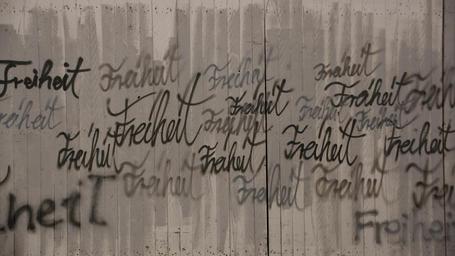 Freiheit Freiheit Freiheit Freiheit
Freiheit Freiheit
Freiheit Freiheit Freiheit Freiheit
Freiheit Freiheit Freiheit Freiheit
Freiheit Freiheit Freiheit
Freiheit